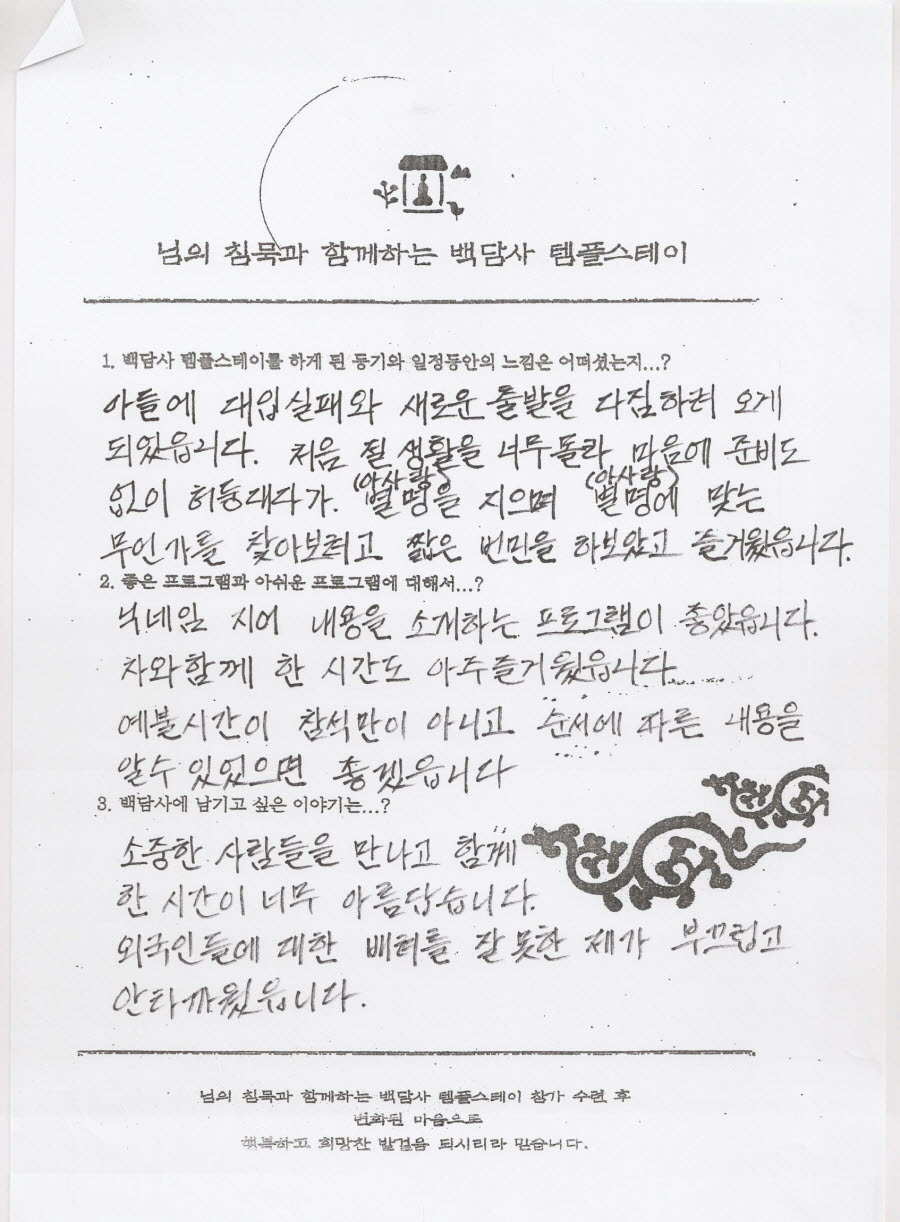 님의 침묵과 함께하는 백담사 템플스테이
1. 백담사 템플스테이를 하게 된 동기와 일정동안의 느낌은 어떠셨는지...?
아들에 대입실패와 새로운 출발을 다짐하려 오게
되었읍니다. 처음 절 생활을 너무몰라 마음에 준비도
없이 허둥대다가. 별명을 지으며 별명에 맞는
(아사랑) (아사랑)
무언가를 찾아보려고 짧은 번민을 하보았고 즐거웠읍니다.
2. 좋은 프로그램과 아쉬운 프로그램에 대해서...?
닉네임 지어 내용을 소개하는 프로그램이 좋았읍니다.
차와함께 한 시간도 아주즐거웠읍니다
예불시간이 참석만이 아니고 순서에 따른 내용을
알수 있었으면 좋겠읍니다
3. 백담사에 남기고 싶은 이야기는...?
소중한 사람들을 만나고 함께
한 시간이 너무 아름답습니다.
외국인들에 대한 배려를 잘못한 제가 부끄럽고
안타까웠읍니다.
님의 침묵과 함께하는 백담사 템플스테이 참가 수련 후
변화된 마음으로
행복하고 희망찬 발걸음 되시리라 믿습니다.